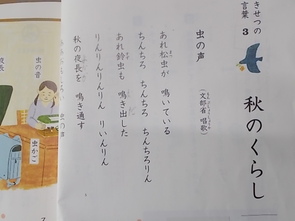 きせつの
言葉 3
秋のくらし
虫の声
(文部省 唱歌)
あれ松虫が 鳴いている
ちんちろ ちんちろ ちんちろりん
あれ鈴虫も 鳴き出した
りんりんりんりん りいんりん
秋の夜長を 鳴き通す
虫の音
虫かご
夜長